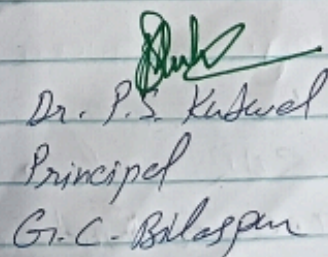 Dr. P.S. Katwal
Principal
G. C. Bilaspur